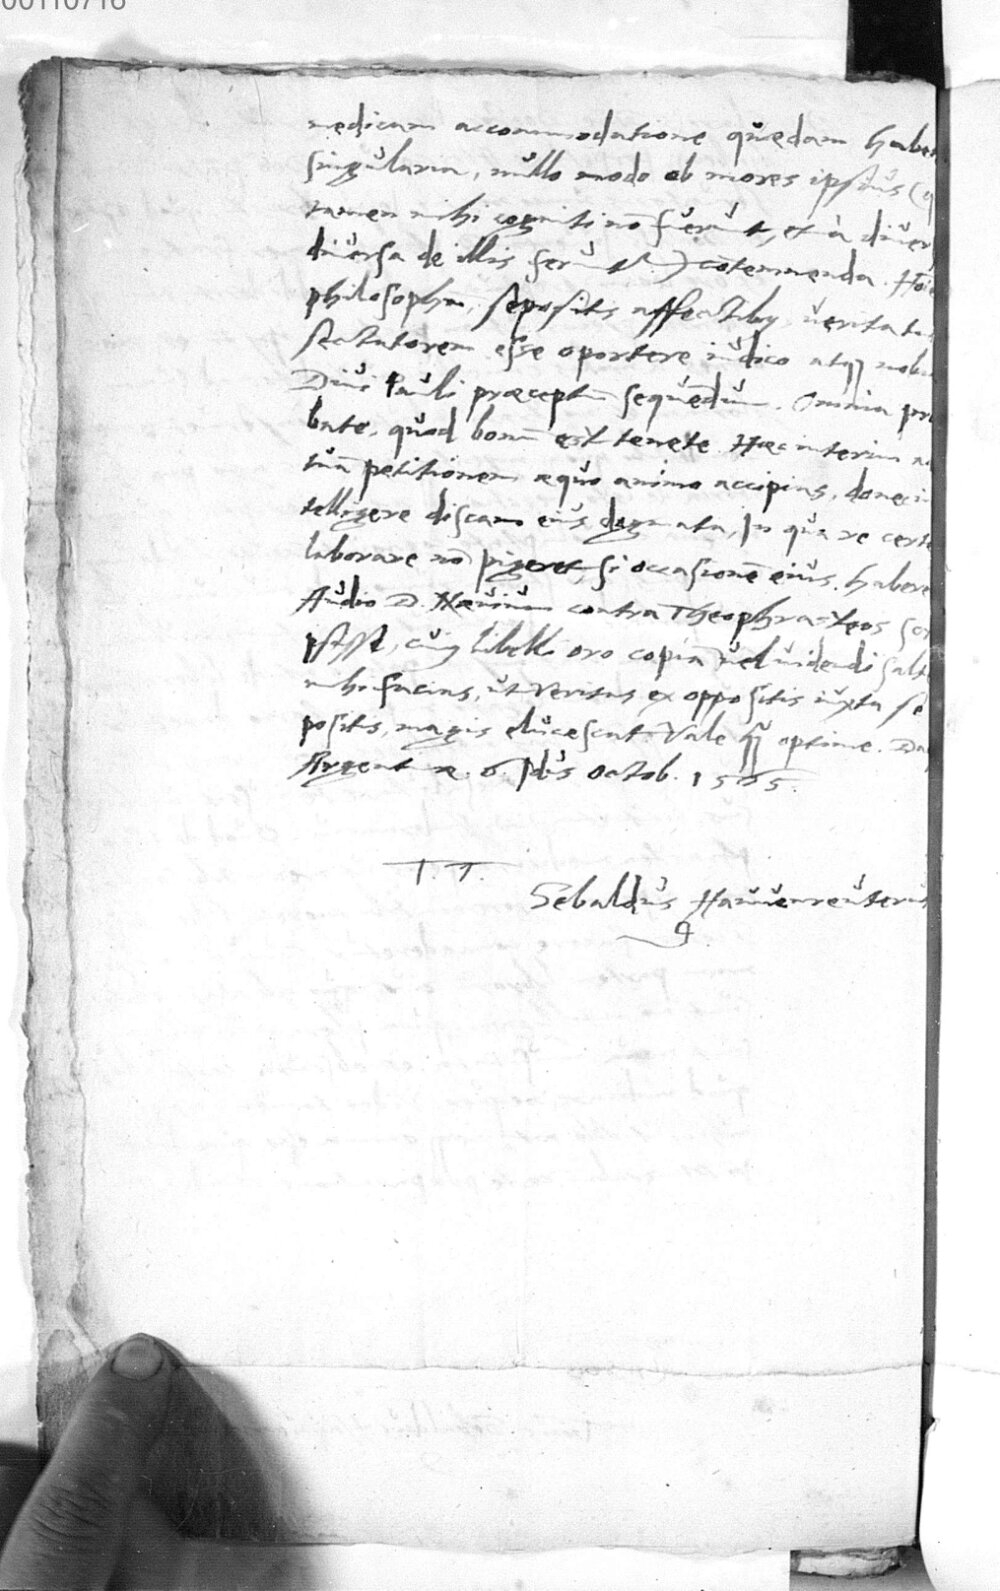 00110716
medicam accommodatione quædam habe
singularia, nullo modo ob mores ipsius (q
tamen mihi cogniti nō fuerūt, et à diver
diversa de illis ferūtʳ) cōtemnenda.
philosophū, sepositis affectibꝰ, veritatis
sectatorem esse oportere iudico atqꝫ nobis
Divi Pauli præceptū sequēdum. Omnia pro
bate, quod bonū est tenete. Hæc interim a
tuā petitionem æquo animo accipias, donec in
telligere discam eius dogmata, In qua re certe
laborare nō pigeret, si occasionē eius habere
Audio D. Nævium contra Theophrasteos scr
psisse, cuiꝰ libelli oro copiā vel videndi salt
mihi facias, ut veritas ex oppositis iuxta se
positis, magis elucescat. Vale qꝫ optime. Da
Argentinæ. 6. Idus Octob. 1565.
T. T.
Sebaldus Hauuenreuterus